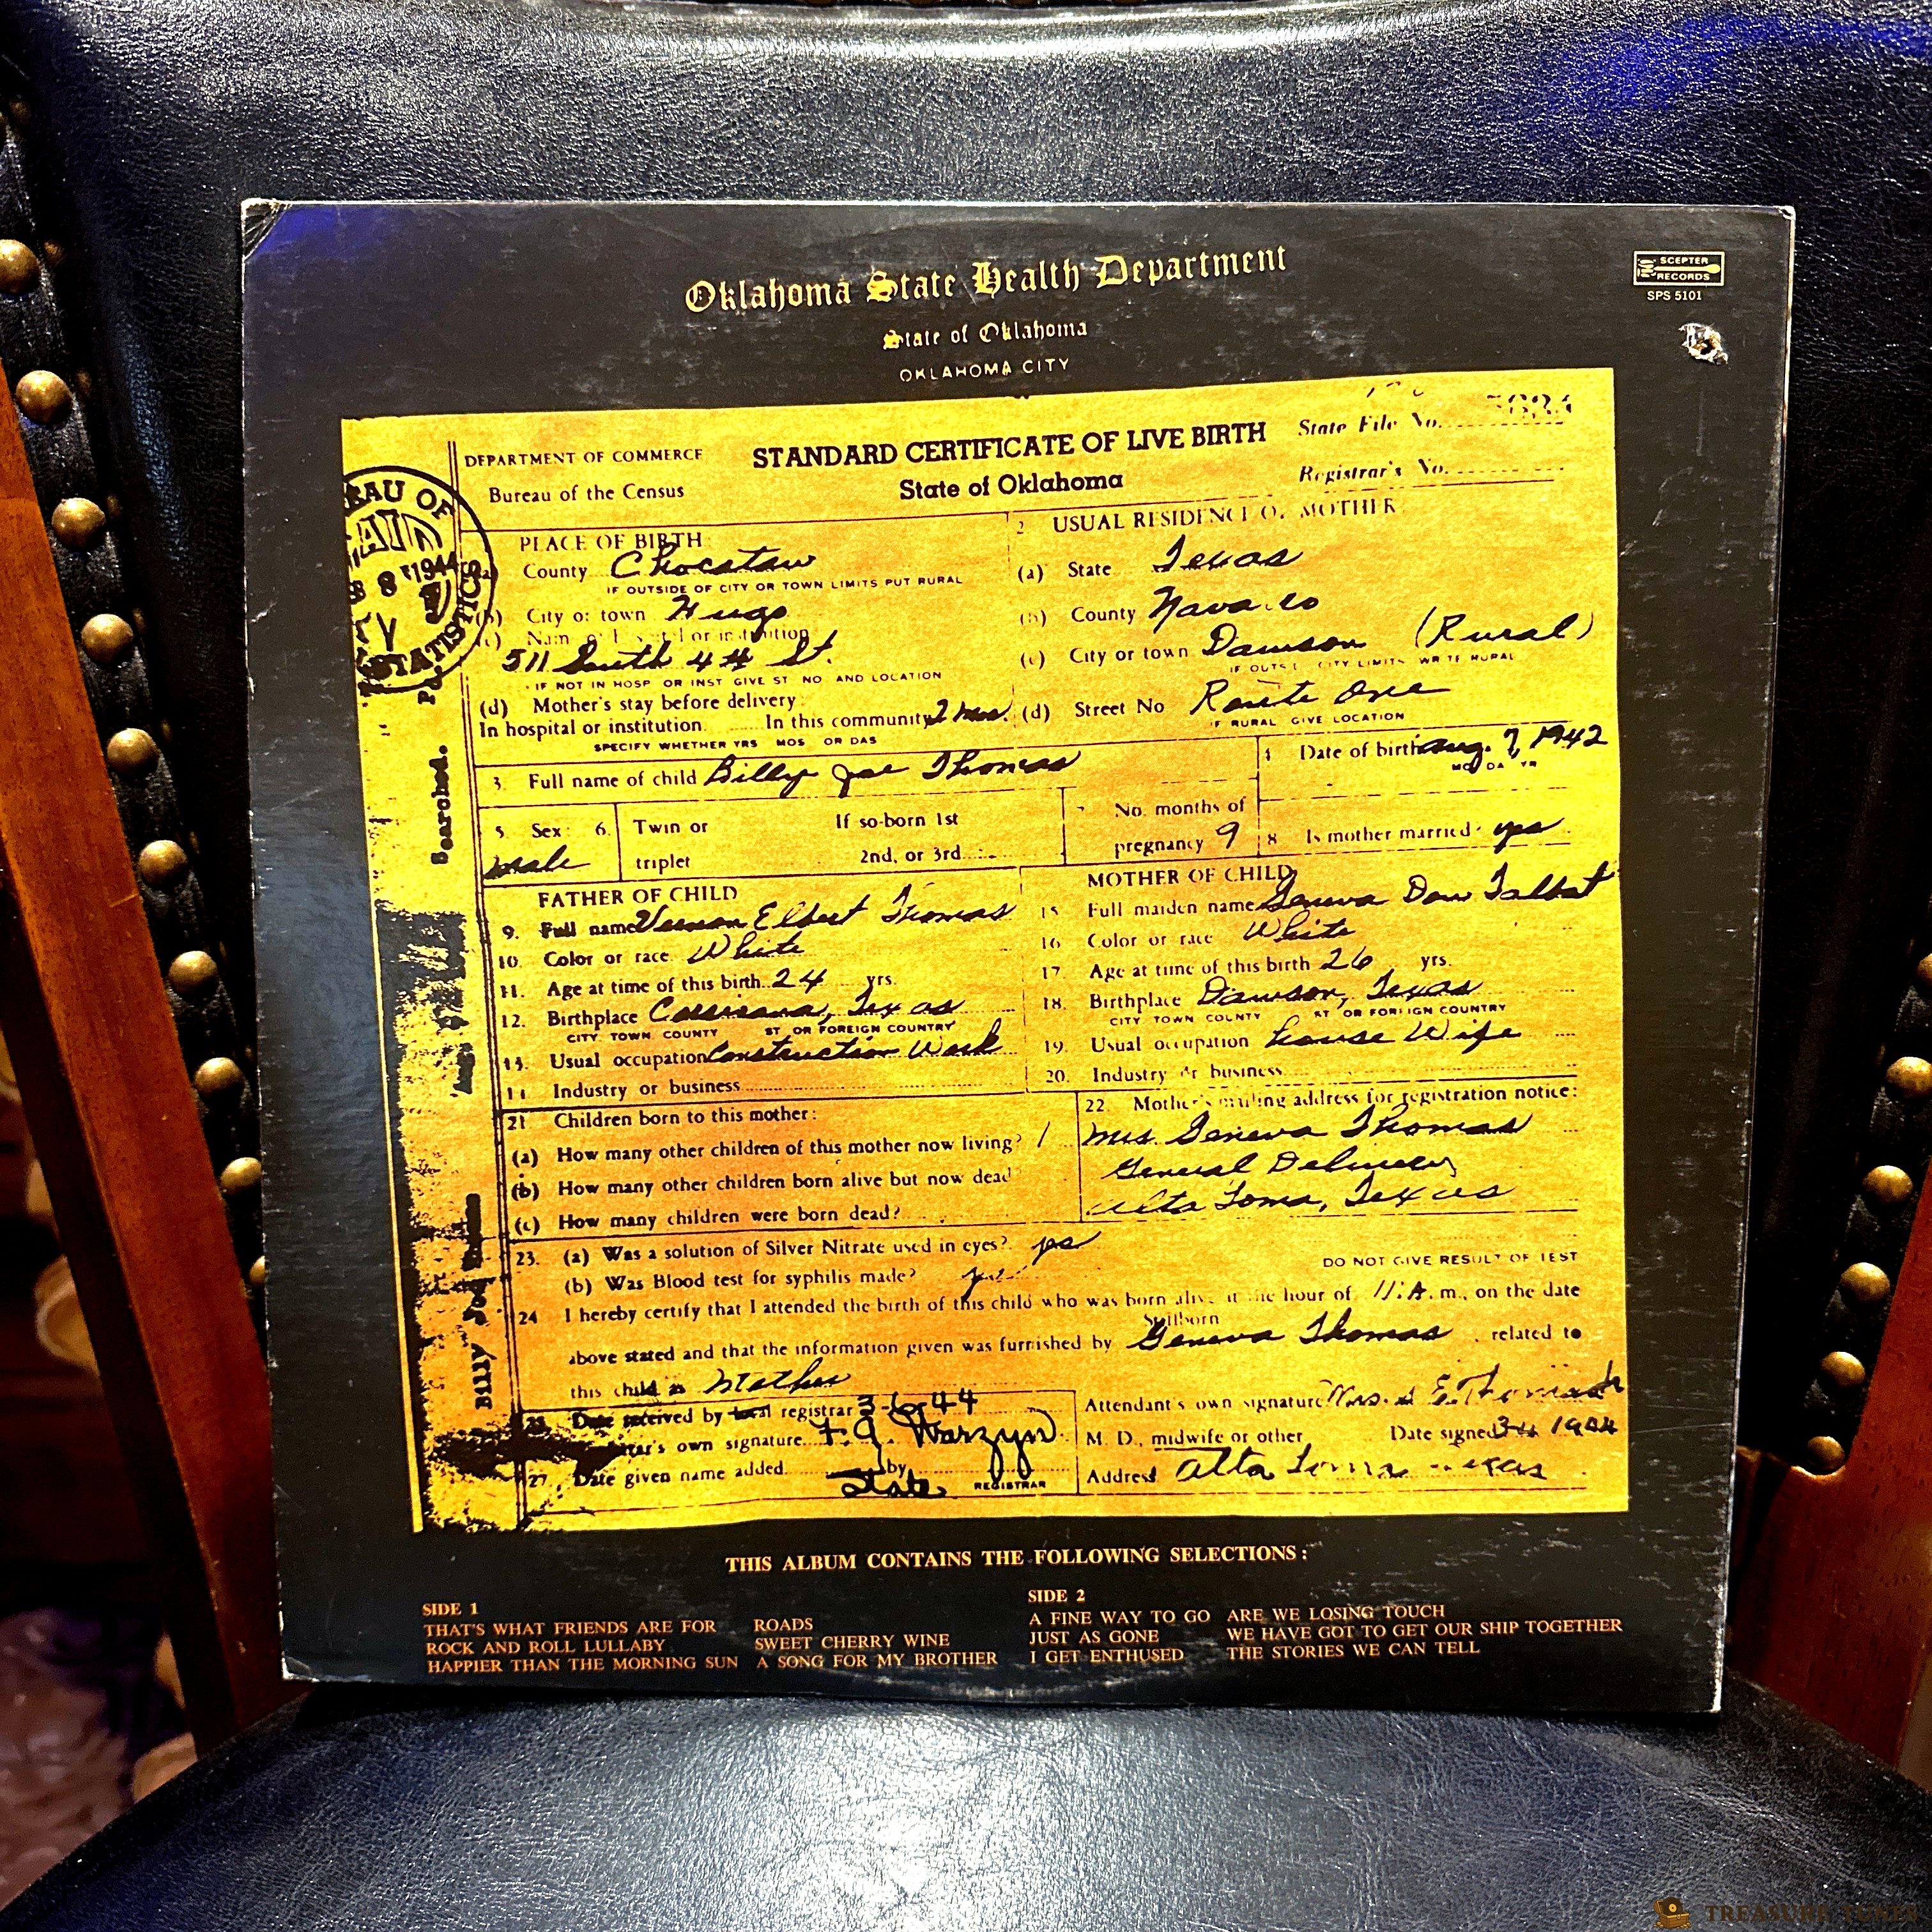 Oklahoma State Health Department
State of Oklahoma
OKLAHOMA CITY
SCEPTER
RECORDS
SPS 5101
DEPARTMENT OF COMMERCE
Bureau of the Census
STANDARD CERTIFICATE OF LIVE BIRTH
State of Oklahoma
State File No.
Registrar's No.
PLACE OF BIRTH
County Chocataw
IF OUTSIDE OF CITY OR TOWN LIMITS PUT RURAL
(b) City or town Hugo
511 South 4th St.
IF NOT IN HOSP OR INST GIVE ST NO AND LOCATION
(d) Mother's stay before delivery:
In hospital or institution. In this community 2 mos.
SPECIFY WHETHER YRS MOS OR DAS
2 USUAL RESIDENCE OF MOTHER
(a) State Texas
(b) County Navarro
(c) City or town Dawson (Rural)
IF OUTSIDE CITY LIMITS WRITE RURAL
(d) Street No Route One
IF RURAL GIVE LOCATION
3. Full name of child Billy Joe Thomas
4 Date of birth Aug. 7, 1942
MO DA YR
5. Sex: male
6. Twin or triplet
If so-born 1st
2nd, or 3rd
No. months of
pregnancy 9
8 Is mother married? yes
FATHER OF CHILD
9. Full name Vernon Elbert Thomas
10. Color or race. White
11. Age at time of this birth 24 yrs.
12. Birthplace Corsicana, Texas
CITY TOWN COUNTY ST OR FOREIGN COUNTRY
13. Usual occupation Construction Work
14 Industry or business
MOTHER OF CHILD
15 Full maiden name Geneva Dow Talbot
16 Color or race White
17. Age at time of this birth 26 yrs.
18. Birthplace Dawson, Texas
CITY TOWN COUNTY ST OR FOREIGN COUNTRY
19. Usual occupation house Wife
20. Industry or business
21 Children born to this mother:
(a) How many other children of this mother now living? 1
(b) How many other children born alive but now dead
(c) How many children were born dead?
22. Mother's mailing address for registration notice:
Mrs Geneva Thomas
General Delivery
Alta Loma, Texas
23. (a) Was a solution of Silver Nitrate used in eyes? yes
(b) Was Blood test for syphilis made? yes
DO NOT GIVE RESULT OF TEST
24 I hereby certify that I attended the birth of this child who was born alive at the hour of 11:A.m., on the date
Stillborn
above stated and that the information given was furnished by Geneva Thomas, related to
this child as Mother
Date received by local registrar 3-6-44
own signature F. G. Warzyn
27. Date given name added by
State REGISTRAR
Attendant's own signature Mrs.
M. D., midwife or other Date signed
Address Alta Loma Texas
BUREAU OF
1944
STATISTICS
Searched.
Billy Joe
THIS ALBUM CONTAINS THE FOLLOWING SELECTIONS:
SIDE 1
THAT'S WHAT FRIENDS ARE FOR
ROCK AND ROLL LULLABY
HAPPIER THAN THE MORNING SUN
ROADS
SWEET CHERRY WINE
A SONG FOR MY BROTHER
SIDE 2
A FINE WAY TO GO
JUST AS GONE
I GET ENTHUSED
ARE WE LOSING TOUCH
WE HAVE GOT TO GET OUR SHIP TOGETHER
THE STORIES WE CAN TELL
TREASURE TUNES